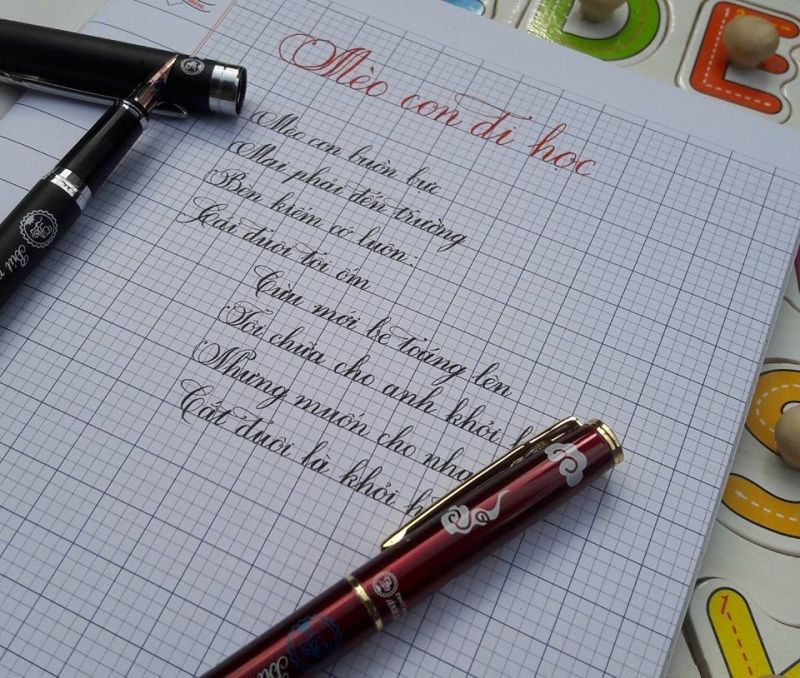 Mèo con đi học
Mèo con buồn bực
Mai phải đến trường
Bèn kiếm cớ luôn:
Cái đuôi tôi ốm
Cừu mới be toáng lên
Tôi chữa cho anh khỏi
Nhưng muốn cho
Cắt đuôi là khỏi
Bút